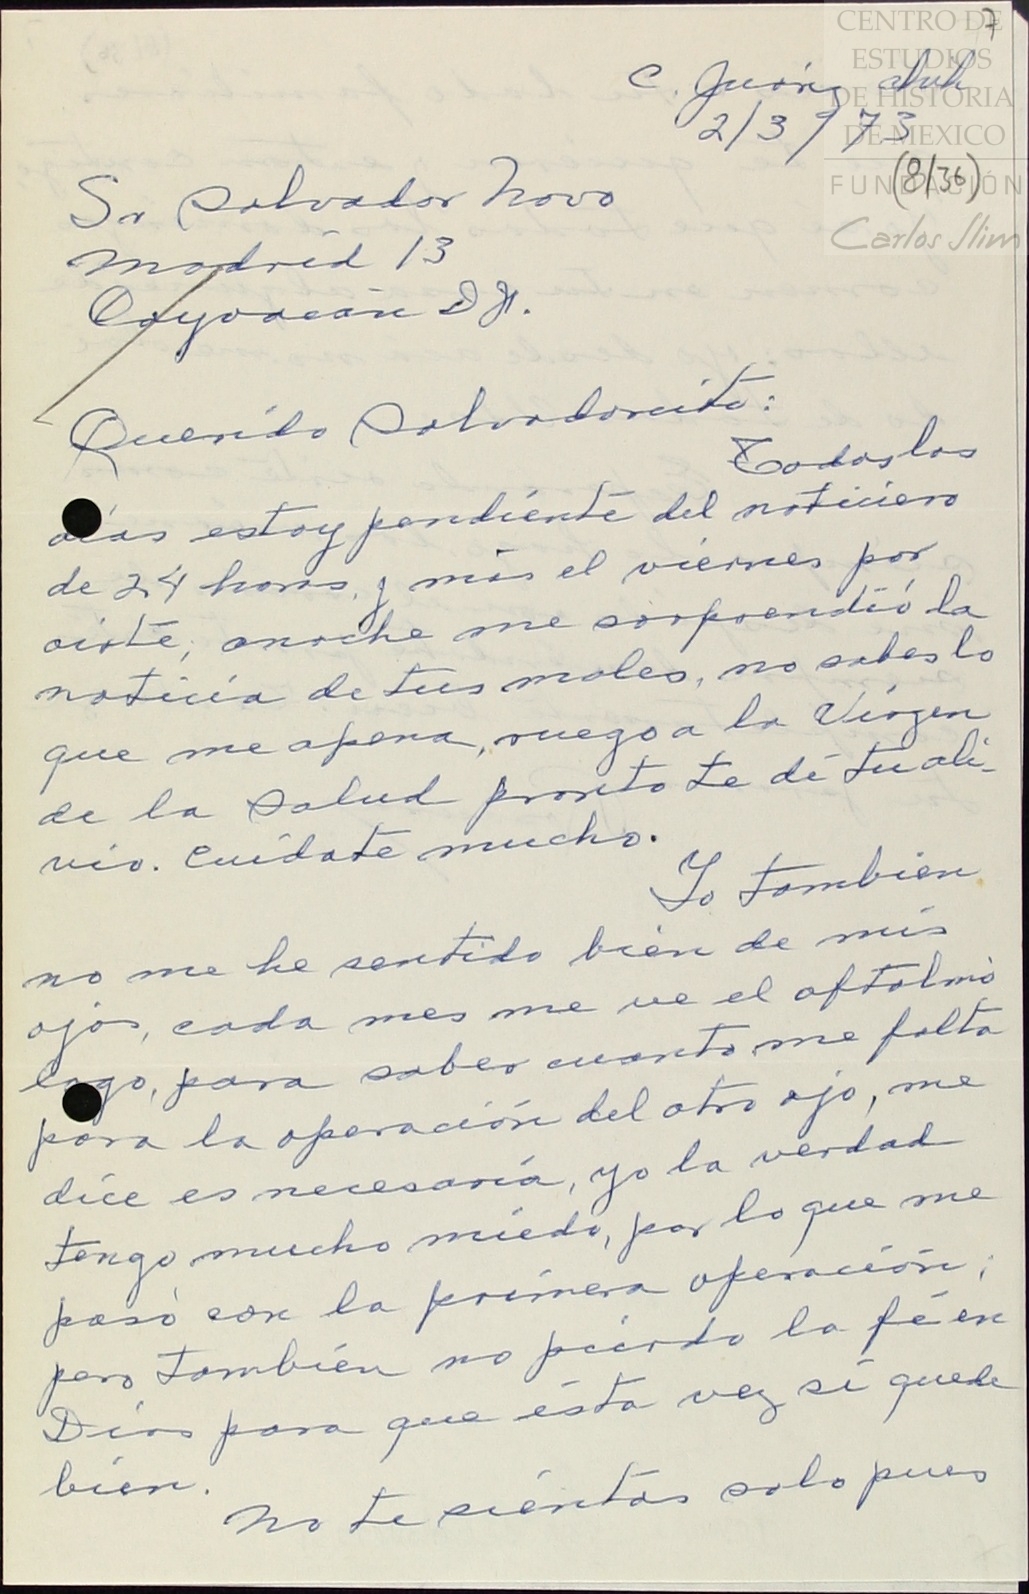 7
CENTRO DE
ESTUDIOS
DE HISTORIA
DE MEXICO
FUNDACIÓN
Carlos Slim
C. Juárez Chih
2/3/73
(8/36)
Sr Salvador Novo
Madrid 13
Coyoacán D F.
Querido Salvadorcito:
Todos los
días estoy pendiente del noticiero
de 24 horas, y más el viernes por
oirte, anoche me sorprendió la
noticia de tus males, no sabes lo
que me apena, ruego a la Virgen
de la Salud pronto te dé tu ali-
vio. Cuídate mucho.
Yo tambien
no me he sentido bien de mis
ojos, cada mes me ve el oftalmó
logo, para saber cuanto me falta
para la operación del otro ojo, me
dice es necesaria, yo la verdad
tengo mucho miedo, por lo que me
pasó con la primera operación;
pero también no pierdo la fé en
Dios para que ésta vez sí quede
bien.
No te sientas solo pues